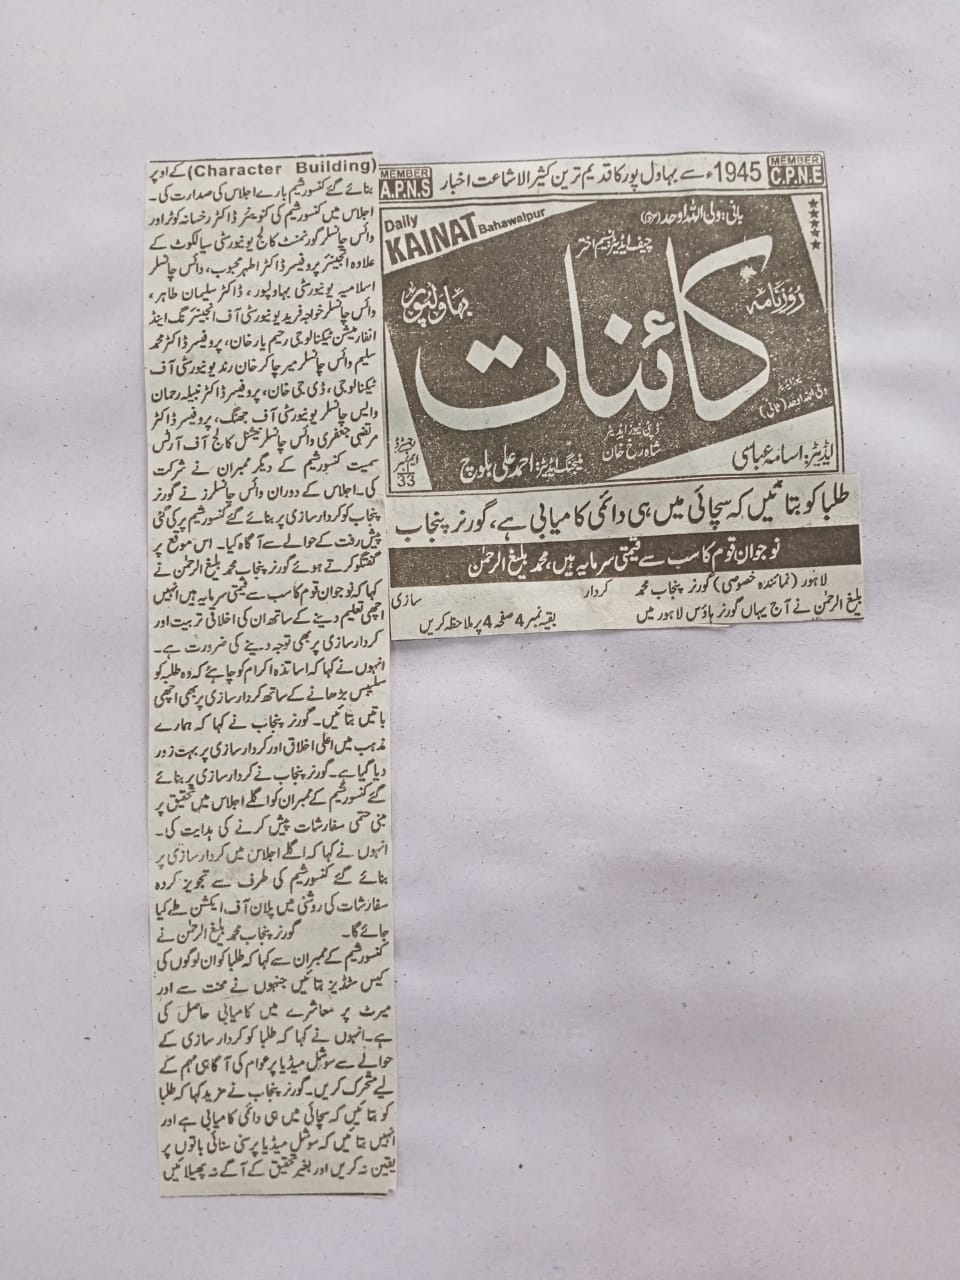 MEMBER A.P.N.S
1945ء سے بہاول پور کا قدیم ترین کثیر الاشاعت اخبار
MEMBER C.P.N.E
Daily KAINAT Bahawalpur
بانی: ولی اللہ اوحد (مرحوم)
چیف ایڈیٹر: نسیم اختر
روزنامہ
کائنات
بہاولپور
ولی اللہ اوحد (ثانی)
ڈپٹی نیوز ایڈیٹر
شاہ رخ خان
ایڈیٹر: اسامہ عباسی
منیجنگ ایڈیٹر: احمد علی بلوچ
رجسٹرڈ ایم نمبر 33
طلبا کو بتائیں کہ سچائی میں ہی دائمی کامیابی ہے، گورنر پنجاب
نوجوان قوم کا سب سے قیمتی سرمایہ ہیں، محمد بلیغ الرحمٰن
لاہور (نمائندہ خصوصی) گورنر پنجاب محمد
بلیغ الرحمٰن نے آج یہاں گورنر ہاؤس لاہور میں
کردار سازی
بقیہ نمبر 4 صفحہ 4 پر ملاحظہ کریں
(Character Building) کے اوپر
بنائے گئے کنسورشیم بارے اجلاس کی صدارت کی۔
اجلاس میں کنسورشیم کی کنوینر ڈاکٹر رخسانہ کوثر اور
وائس چانسلر گورنمنٹ کالج یونیورسٹی سیالکوٹ کے
علاوہ انجینئر پروفیسر ڈاکٹر اطہر محبوب، وائس چانسلر
اسلامیہ یونیورسٹی بہاولپور، ڈاکٹر سلیمان طاہر،
وائس چانسلر خواجہ فرید یونیورسٹی آف انجینئرنگ اینڈ
انفارمیشن ٹیکنالوجی رحیم یار خان، پروفیسر ڈاکٹر محمد
سلیم وائس چانسلر میر چاکر خان رند یونیورسٹی آف
ٹیکنالوجی، ڈی جی خان، پروفیسر ڈاکٹر نبیلہ رحمان
وایس چانسلر یونیورسٹی آف جھنگ، پروفیسر ڈاکٹر
مرتضیٰ جعفری وائس چانسلر نیشنل کالج آف آرٹس
سمیت کنسورشیم کے دیگر ممبران نے شرکت
کی۔ اجلاس کے دوران وائس چانسلرز نے گورنر
پنجاب کو کردار سازی پر بنائے گئے کنسورشیم پر کی گئی
پیش رفت کے حوالے سے آگاہ کیا۔ اس موقع پر
گفتگو کرتے ہوئے گورنر پنجاب محمد بلیغ الرحمٰن نے
کہا کہ نوجوان قوم کا سب سے قیمتی سرمایہ ہیں انہیں
اچھی تعلیم دینے کے ساتھ ان کی اخلاقی تربیت اور
کردار سازی پر بھی توجہ دینے کی ضرورت ہے۔
انہوں نے کہا کہ اساتذہ اکرام کو چاہئے کہ وہ طلبہ کو
سلیبس پڑھانے کے ساتھ کردار سازی پر بھی اچھی
باتیں بتائیں۔ گورنر پنجاب نے کہا کہ ہمارے
مذہب میں اعلیٰ اخلاق اور کردار سازی پر بہت زور
دیا گیا ہے۔ گورنر پنجاب نے کردار سازی پر بنائے
گئے کنسورشیم کے ممبران کو اگلے اجلاس میں تحقیق پر
مبنی حتمی سفارشات پیش کرنے کی ہدایت کی۔
انہوں نے کہا کہ اگلے اجلاس میں کردار سازی پر
بنائے گئے کنسورشیم کی طرف سے تجویز کردہ
سفارشات کی روشنی میں پلان آف ایکشن طے کیا
جائے گا۔ گورنر پنجاب محمد بلیغ الرحمٰن نے
کنسورشیم کے ممبران سے کہا کہ طلبا کو ان لوگوں کی
کیس سٹڈیز بتائیں جنہوں نے محنت سے اور
میرٹ پر معاشرے میں کامیابی حاصل کی
ہے۔ انہوں نے کہا کہ طلبا کو کردار سازی کے
حوالے سے سوشل میڈیا پر عوام کی آگاہی مہم کے
لیے متحرک کریں۔ گورنر پنجاب نے مزید کہا کہ طلبا
کو بتائیں کہ سچائی میں ہی دائمی کامیابی ہے اور
انہیں بتائیں کہ سوشل میڈیا پر سنی سنائی باتوں پر
یقین نہ کریں اور بغیر تحقیق کے آگے نہ پھیلائیں